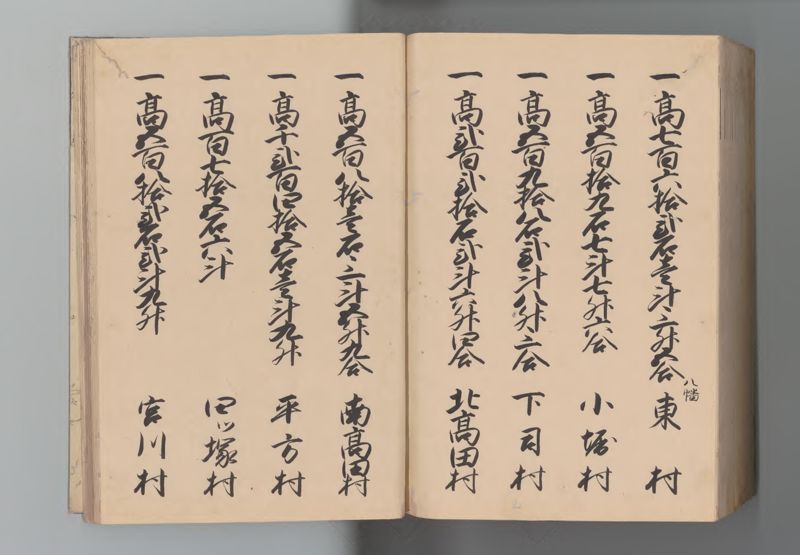 一高七百六拾弐石壱斗三升五合 八幡東村
一高五百拾九石七斗七升六合 小堀村
一高五百九拾八石弐斗八升三合 下司村
一高弐百弐拾石弐斗六升四合 北高田村
一高五百八拾壱石三斗五升九合 南高田村
一高千弐百四拾五石壱斗九升 平方村
一高百七拾五石六斗 四ツ塚村
一高五百八拾弐石弐斗九升 宮川村